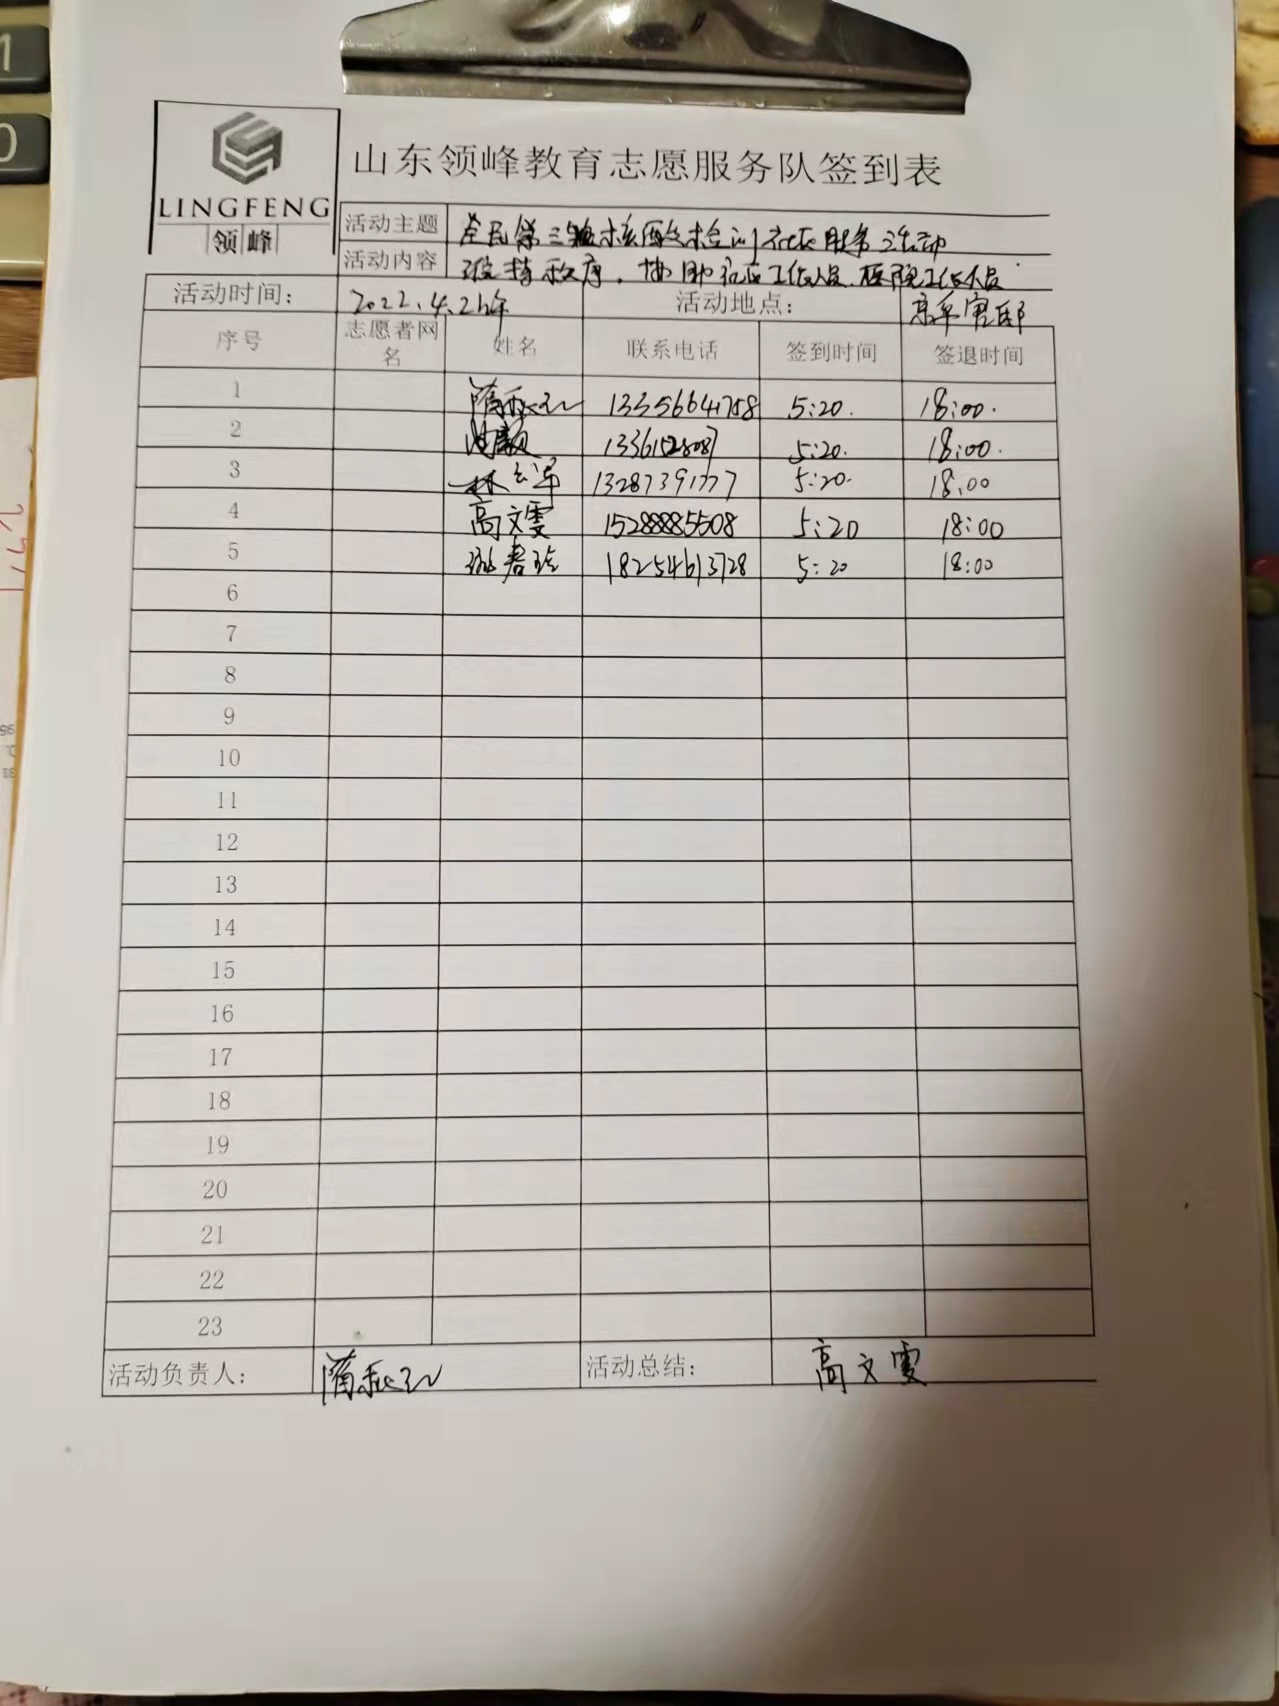 山东领峰教育志愿服务队签到表
LINGFENG
领峰
活动主题 全民第三轮核酸检测社区服务活动
活动内容 维持秩序,协助社区工作人员、医院工作人员
活动时间: 2022.4.26 活动地点:
序号 志愿者网名 姓名 联系电话 签到时间 签退时间
1 13356641758 5:20. 18:00.
2 5:20. 18:00.
3 林 13287391777 5:20. 18:00
4 高文雯 15288885508 5:20 18:00
5 18254613728 5:20 18:00
6
7
8
9
10
11
12
13
14
15
16
17
18
19
20
21
22
23
活动负责人: 活动总结: 高文雯